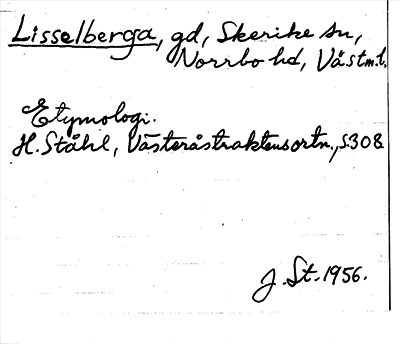 Lisselberga, gd, Skerike sn,
Norrbo hd, Västm.l.
Etymologi.
H. Ståhl, Västeråstraktens ortn., S.308
J. St. 1956.